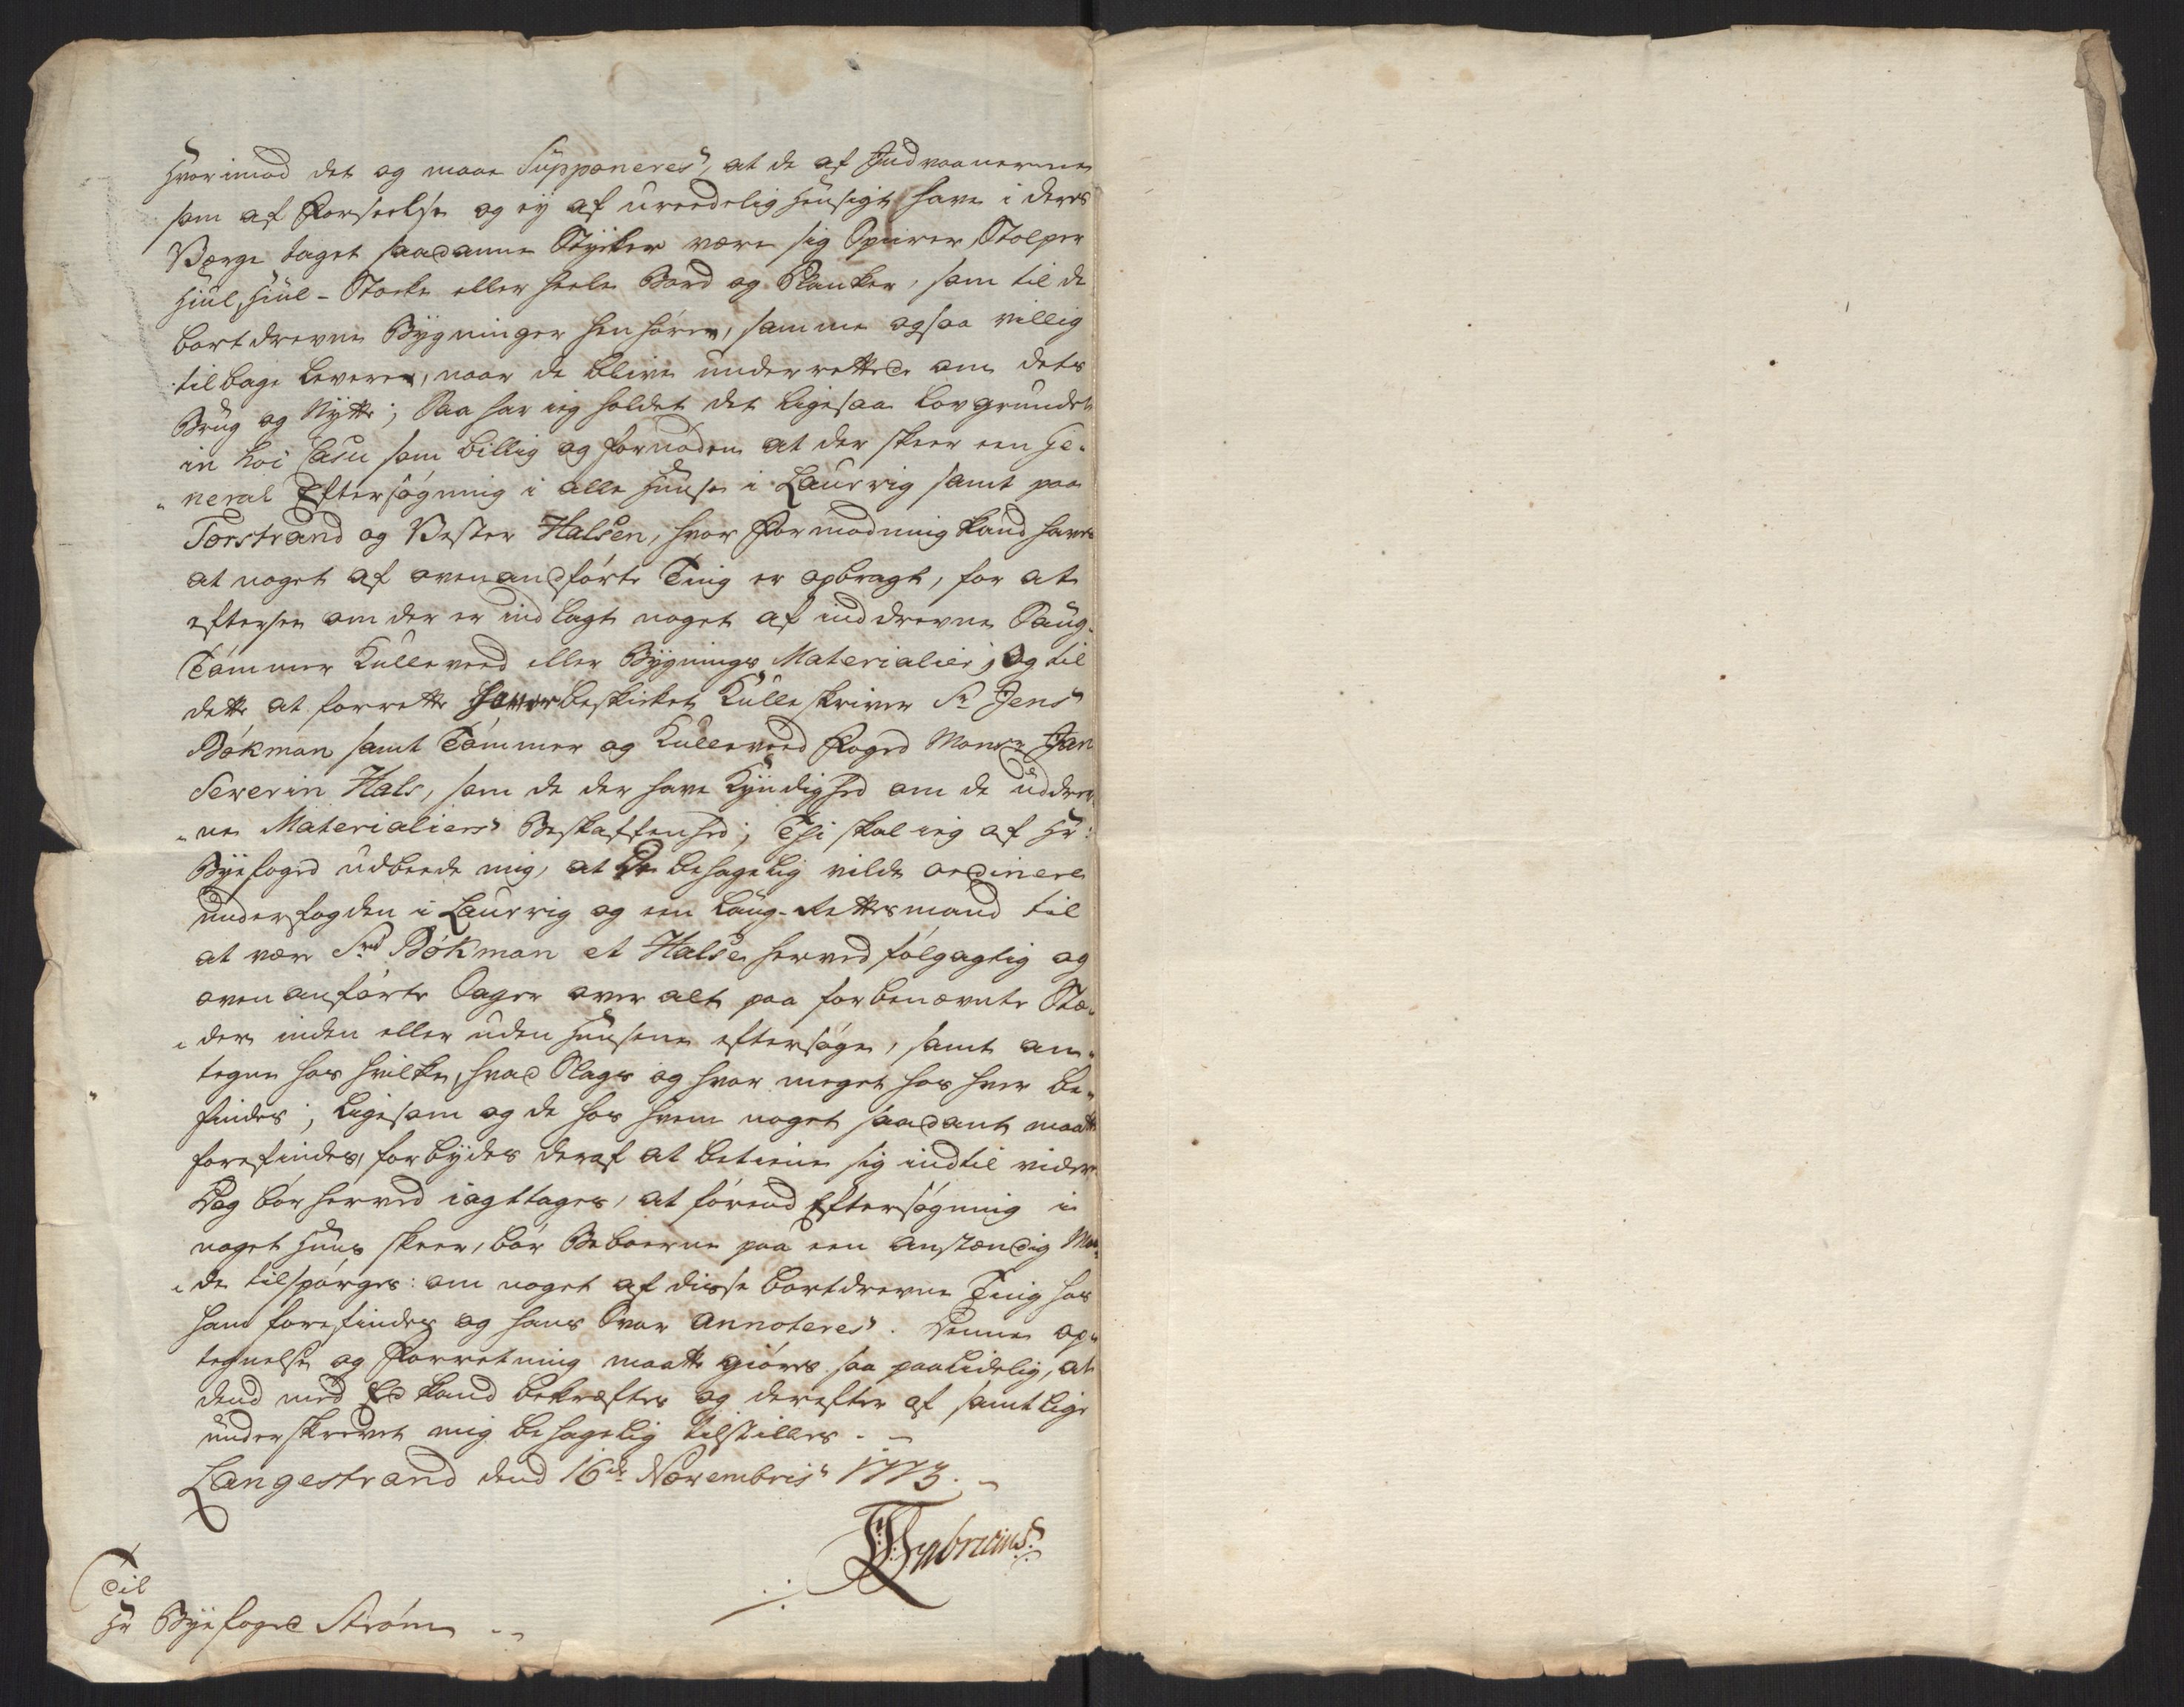 Hvorimod det og maae Supponeres, at de af Indvaanerne
som af Forseelse og ey af ureedelig Hensigt have i deres
Værge taget saadanne Stÿcker være sig Spiirer, Stolper
Hiul, Hiul-Stocke eller heele Bord og Planker, som til de
bortdrevne Bÿgninger henhörer, samme ogsaa villig
tilbage leverer, naar de blive underrettede om dets
Brug og Nÿtte; Saa har ieg holdet det ligesaa lovgrundet
in hoc Casu som billig og fornöden at der skeer een Ge-
neral Eftersögning i alle Huuse i Laurvig samt paa
Torstrand og Vester Halsen, hvor Formodning kand haves
at noget af ovenandförte Ting er opbragt, for at
eftersee om der er indlagt noget af inddrevne Saug-
Tömmer Kulleveed eller Bÿgnings Materialier; Og til
dette at forrette haver beskicket Kulleskriver Sr Jens
Bökman samt Tömmer og Kulleveed Foged Monsr Jan
Severin Hals, som de der have Kÿndighed om de uddrev-
ne Materialiers Beskaffenhed; Thi skal ieg af Hr:
Bÿefoged udbeede mig, at De behagelig vilde ordinere
Underfogden i Laurvig og een Laug-Rettesmand til
at være Srs Bökman et Halse herved fölgagtig og
ovenanförte Sager over alt paa forbenævnte Stæ-
der inden eller uden Huusene eftersöge, samt an-
tegne hos hvilke, hvad Slags og hvor meget hos hver be-
findes; ligesom og de hos hvem noget saadant maatte
forefindes, forbÿdes deraf at betiene sig indtil videre
Dog bör herved iagttages, at förend Eftersögning i
noget Huus skeer, bör Beboerne paa een anstændig Maa-
de tilspörges: om noget af disse bortdrevne Ting hos
ham forefindes og hans Svar Annoteres. Denne Op-
tegnelse og Forretning maatte giöres saa paalidelig, at
dend med Eed kand bekræftes og derefter af samtlige
underskrevet mig behagelig tilstilles.
Langestrand dend 16de Novembris 1773.
Fabricius.
Til
Hr Bÿefoged Ström